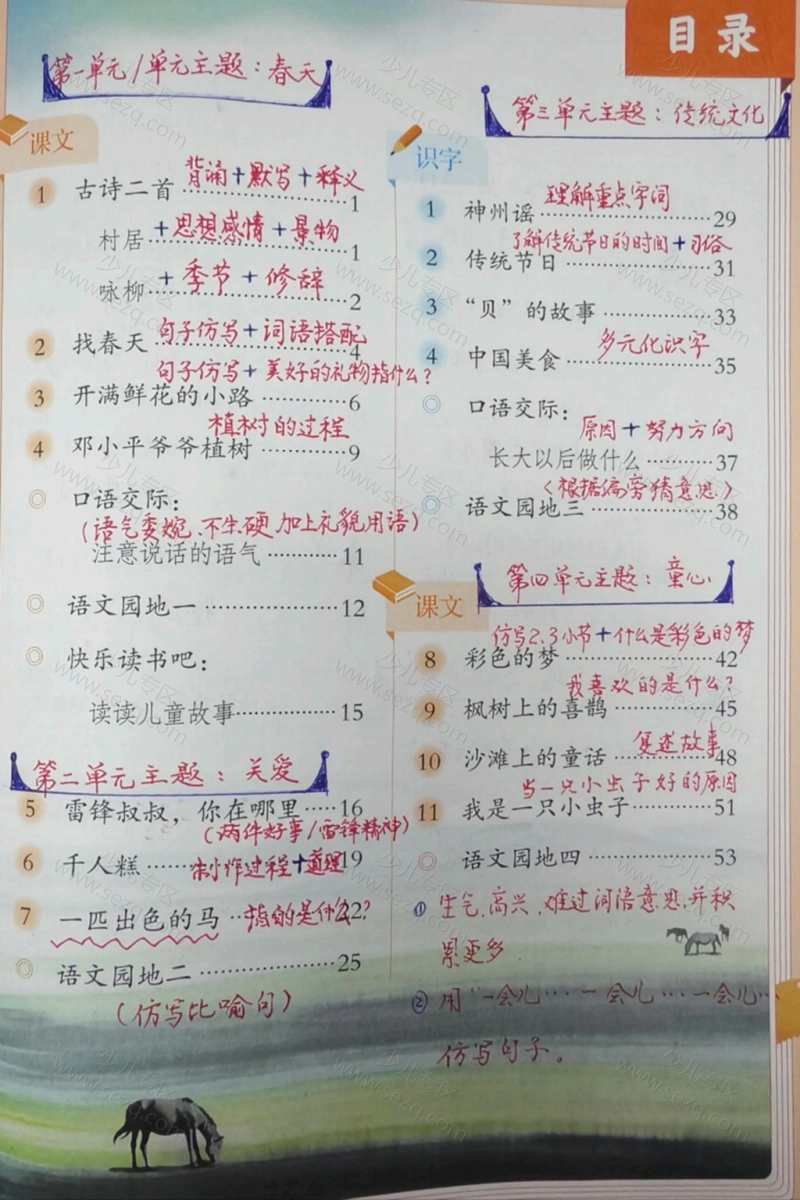 目录
第一单元/单元主题：春天
课文
背诵+默写+释义
1 古诗二首……1
+思想感情+景物
村居……1
+季节+修辞
咏柳……2
句子仿写+词语搭配
2 找春天……4
句子仿写+美好的礼物指什么？
3 开满鲜花的小路……6
植树的过程
4 邓小平爷爷植树……9
◎ 口语交际：
（语气委婉、不生硬，加上礼貌用语）
注意说话的语气……11
◎ 语文园地一……12
◎ 快乐读书吧：
读读儿童故事……15
第二单元主题：关爱
5 雷锋叔叔，你在哪里……16
（两件好事/雷锋精神）
6 千人糕……制作过程+道理19
7 一匹出色的马……指的是什么？22
◎ 语文园地二……25
（仿写比喻句）
第三单元主题：传统文化
识字
理解重点字词
1 神州谣……29
了解传统节日的时间+习俗
2 传统节日……31
3 “贝”的故事……33
多元化识字
4 中国美食……35
◎ 口语交际：
原因+努力方向
长大以后做什么……37
（根据偏旁猜意思）
◎ 语文园地三……38
第四单元主题：童心
课文
仿写2.3小节+什么是彩色的梦
8 彩色的梦……42
我喜欢的是什么？
9 枫树上的喜鹊……45
复述故事
10 沙滩上的童话……48
当一只小虫子好的原因
11 我是一只小虫子……51
◎ 语文园地四……53
① 生气、高兴、难过词语意思，并积
累更多.
② 用“一会儿…一会儿…一会儿…
仿写句子。
少儿专区
www.sezq.com